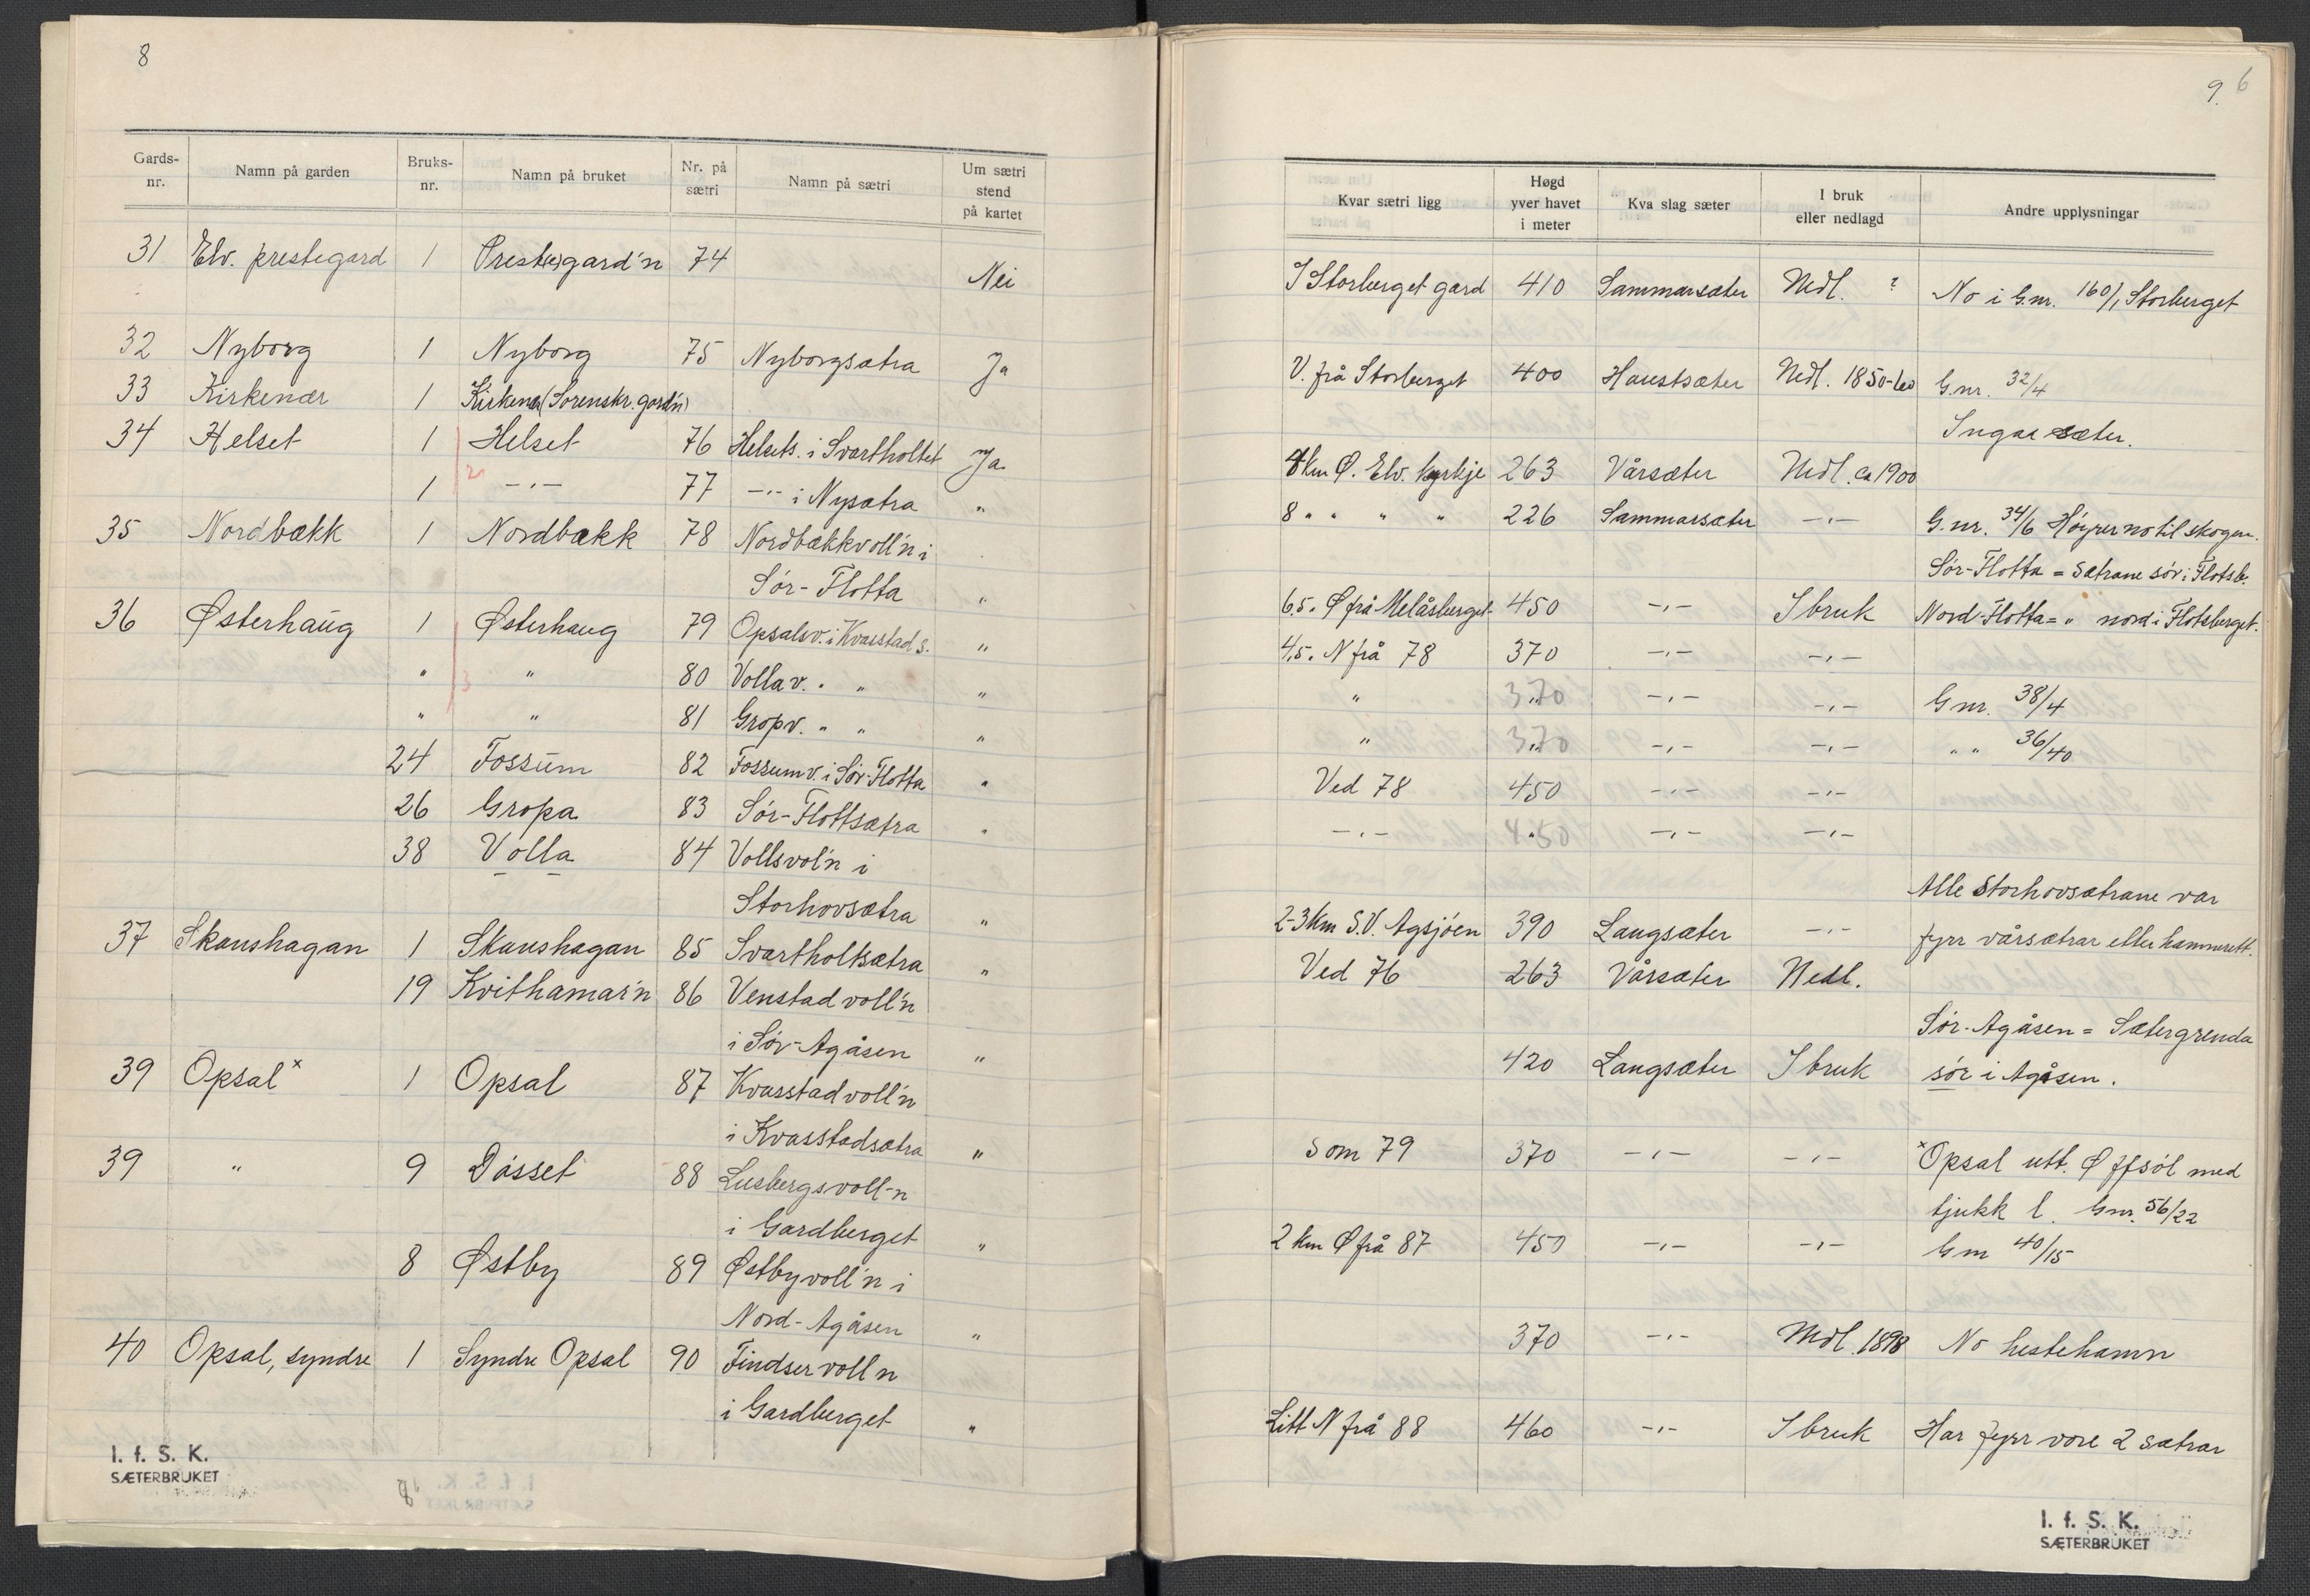 8
Gards-nr. Namn på garden Bruks-nr. Namn på bruket Nr. på sætri Namn på sætri Um sætri stend på kartet
31 Elv. prestegard 1 Prest(e)gard'n 74 Nei
32 Nyborg 1 Nyborg 75 Nyborgsætra Ja
33 Kirkenær 1 Kirkenær (Sorenskr. gard'n)
34 Helset 1 Helset 76 Helsets. i Svartholtet Ja
1 2 -"- 77 -"- i Nysætra "
35 Nordbækk 1 Nordbækk 78 Nordbækkvoll'n i
Sör-Flotta "
36 Østerhaug 1 Østerhaug 79 Opsalsv. i Kvasstad s. "
" 3 " 80 Volla v. " " "
" " 81 Gropv. " " "
24 Fossum 82 Fossumv. i Sör-Flotta "
26 Gropa 83 Sör-Flottsætra "
38 Volla 84 Vollsvol'n i
Storhovsætra "
37 Skaushagan 1 Skaushagan 85 Svartholtsætra "
19 Kvithamar'n 86 Venstad voll'n
i Sör-Agåsen "
39 Opsal x 1 Opsal 87 Kvasstadvoll'n
i Kvasstadsætra "
39 " 9 Dösset 88 Lusbergsvoll'n
i Gardberget "
8 Østby 89 Østbyvoll'n i
Nord-Agåsen "
40 Opsal, syndre 1 Syndre Opsal 90 Findservolln
i Gardberget "
I. f. S. K.
SÆTERBRUKET
9. 6
Kvar sætri ligg Høgd yver havet i meter Kva slag sæter I bruk eller nedlagd Andre upplysningar
I Storberget gard 410 Sammarsæter Nedl. ? No i G.nr. 160/1 Storberget
V. frå Storberget 400 Haustsæter Nedl. 1850-60 G.nr. 32/4
Ingae sæter.
4 km Ø. Elv. kyrkje 263 Vårsæter Nedl. ca 1900
8 " " " " 226 Sammarsæter -"- G.nr. 34/6 Höyrer no til skogen.
Sör-Flotta = Sætrane sör i Flotsb.
6,5 " Ø frå Melåsberget 450 -"- I bruk Nord-Flotta = " nord i Flotsberget.
4,5 " N frå 78 370 -"- -"-
" 370 -"- -"- G.nr. 38/4
" 370 -"- -"- " " 36/40
Ved 78 450 -"- -"-
-"- 450 -"- -"-
Alle Storhovsætrane var
2-3 km S.V. Agsjöen 390 Langsæter -"- fyrr vårsætrar eller hamnerett.
Ved 76 263 Vårsæter Nedl.
Sör-Agåsen = Sætergrenda
420 Langsæter I bruk sör i Agåsen.
Som 79 370 -"- -"- x Opsal utt. Øffsöl med
tjukk l. Gnr. 56/22
2 km Ø frå 87 450 -"- -"- Gnr 40/15
370 -"- Nedl. 1898 No hestehamn
Litt N frå 88 460 -"- I bruk Har fyrr vore 2 sætrar
I. f. S. K.
SÆTERBRUKET